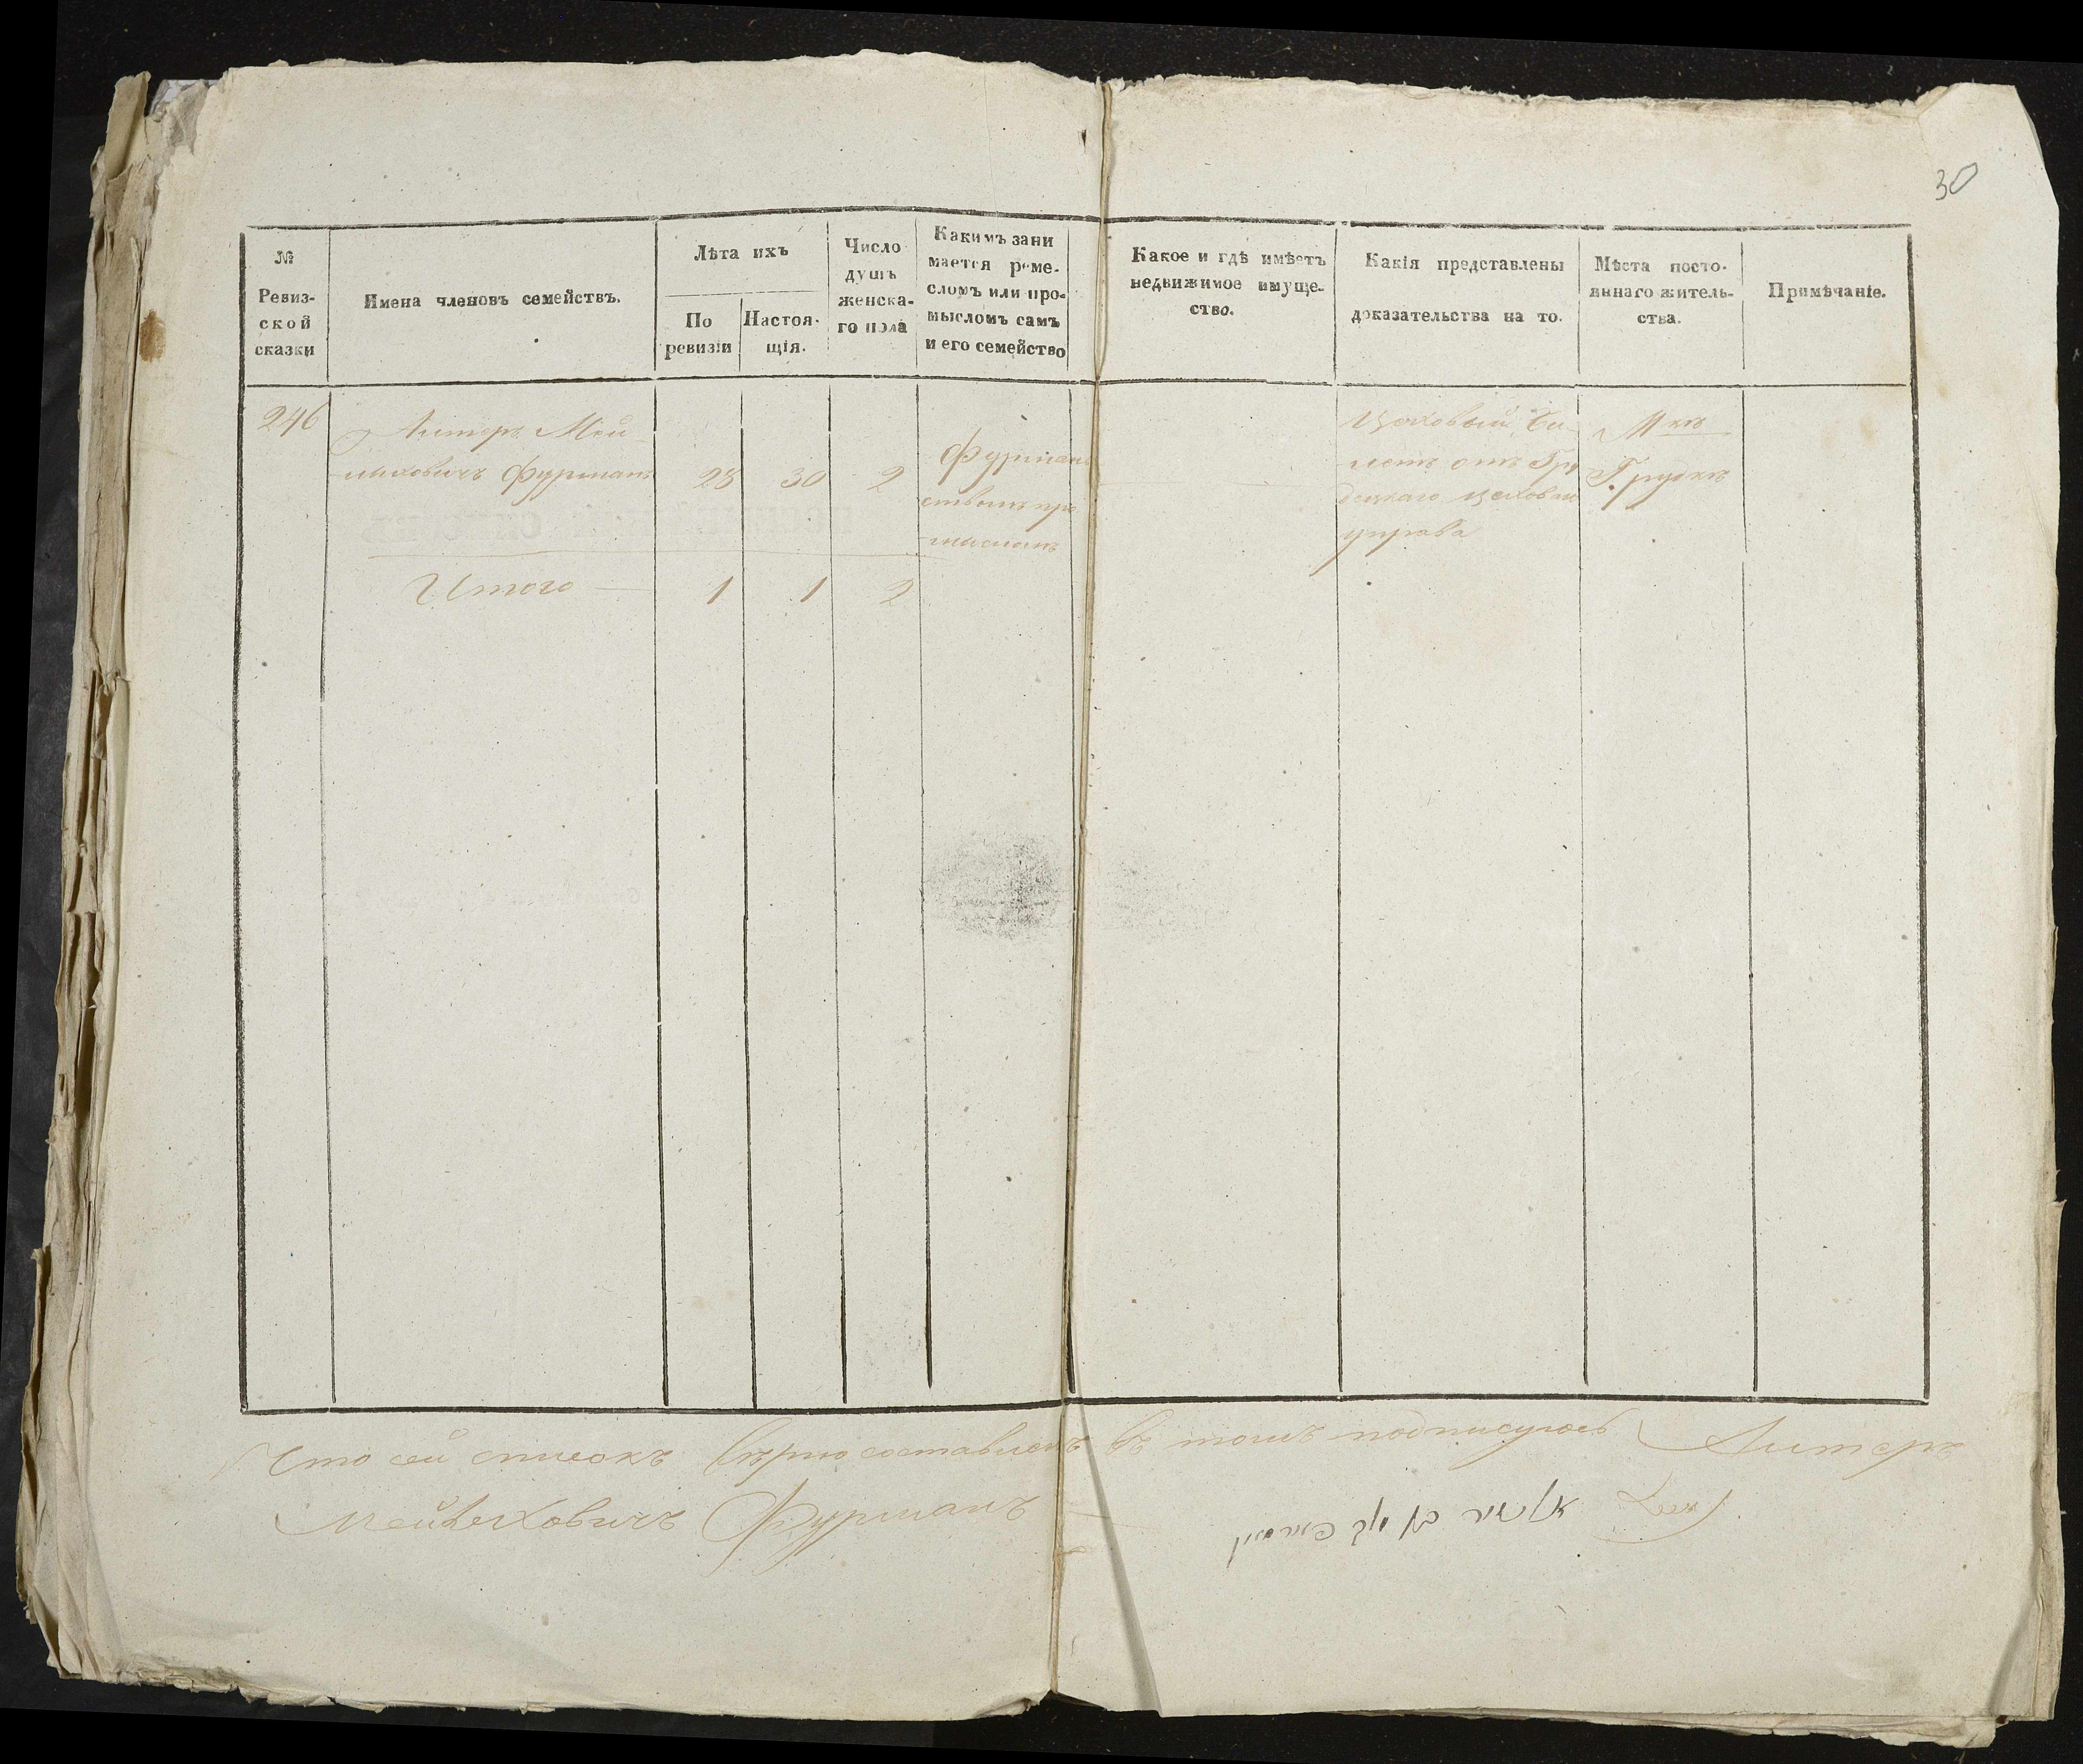 30
№
Ревиз-
ской
сказки
Имена членовъ семействъ.
Лѣта ихъ
По
ревизіи
Настоя-
щія.
Число
душъ
женска-
го пола
Какимъ зани
мается реме-
сломъ или про-
мысломъ самъ
и его семейство
Какое и гдѣ имѣетъ
недвижимое имуще-
ство.
Какія представлены
доказательства на то.
Мѣста посто-
яннаго житель-
ства.
Примѣчаніе.
246
Антеръ Мей-
лиховичъ Фурманъ
28
30
2
Фурман
ствомъ про
мысломъ
Цеховый би-
летъ отъ
цеховой
управа
М ко
Итого
1
1
2
Что сей списокъ вѣрно составленъ въ томъ подписуюсь
Мейлеховичъ Фурманъ